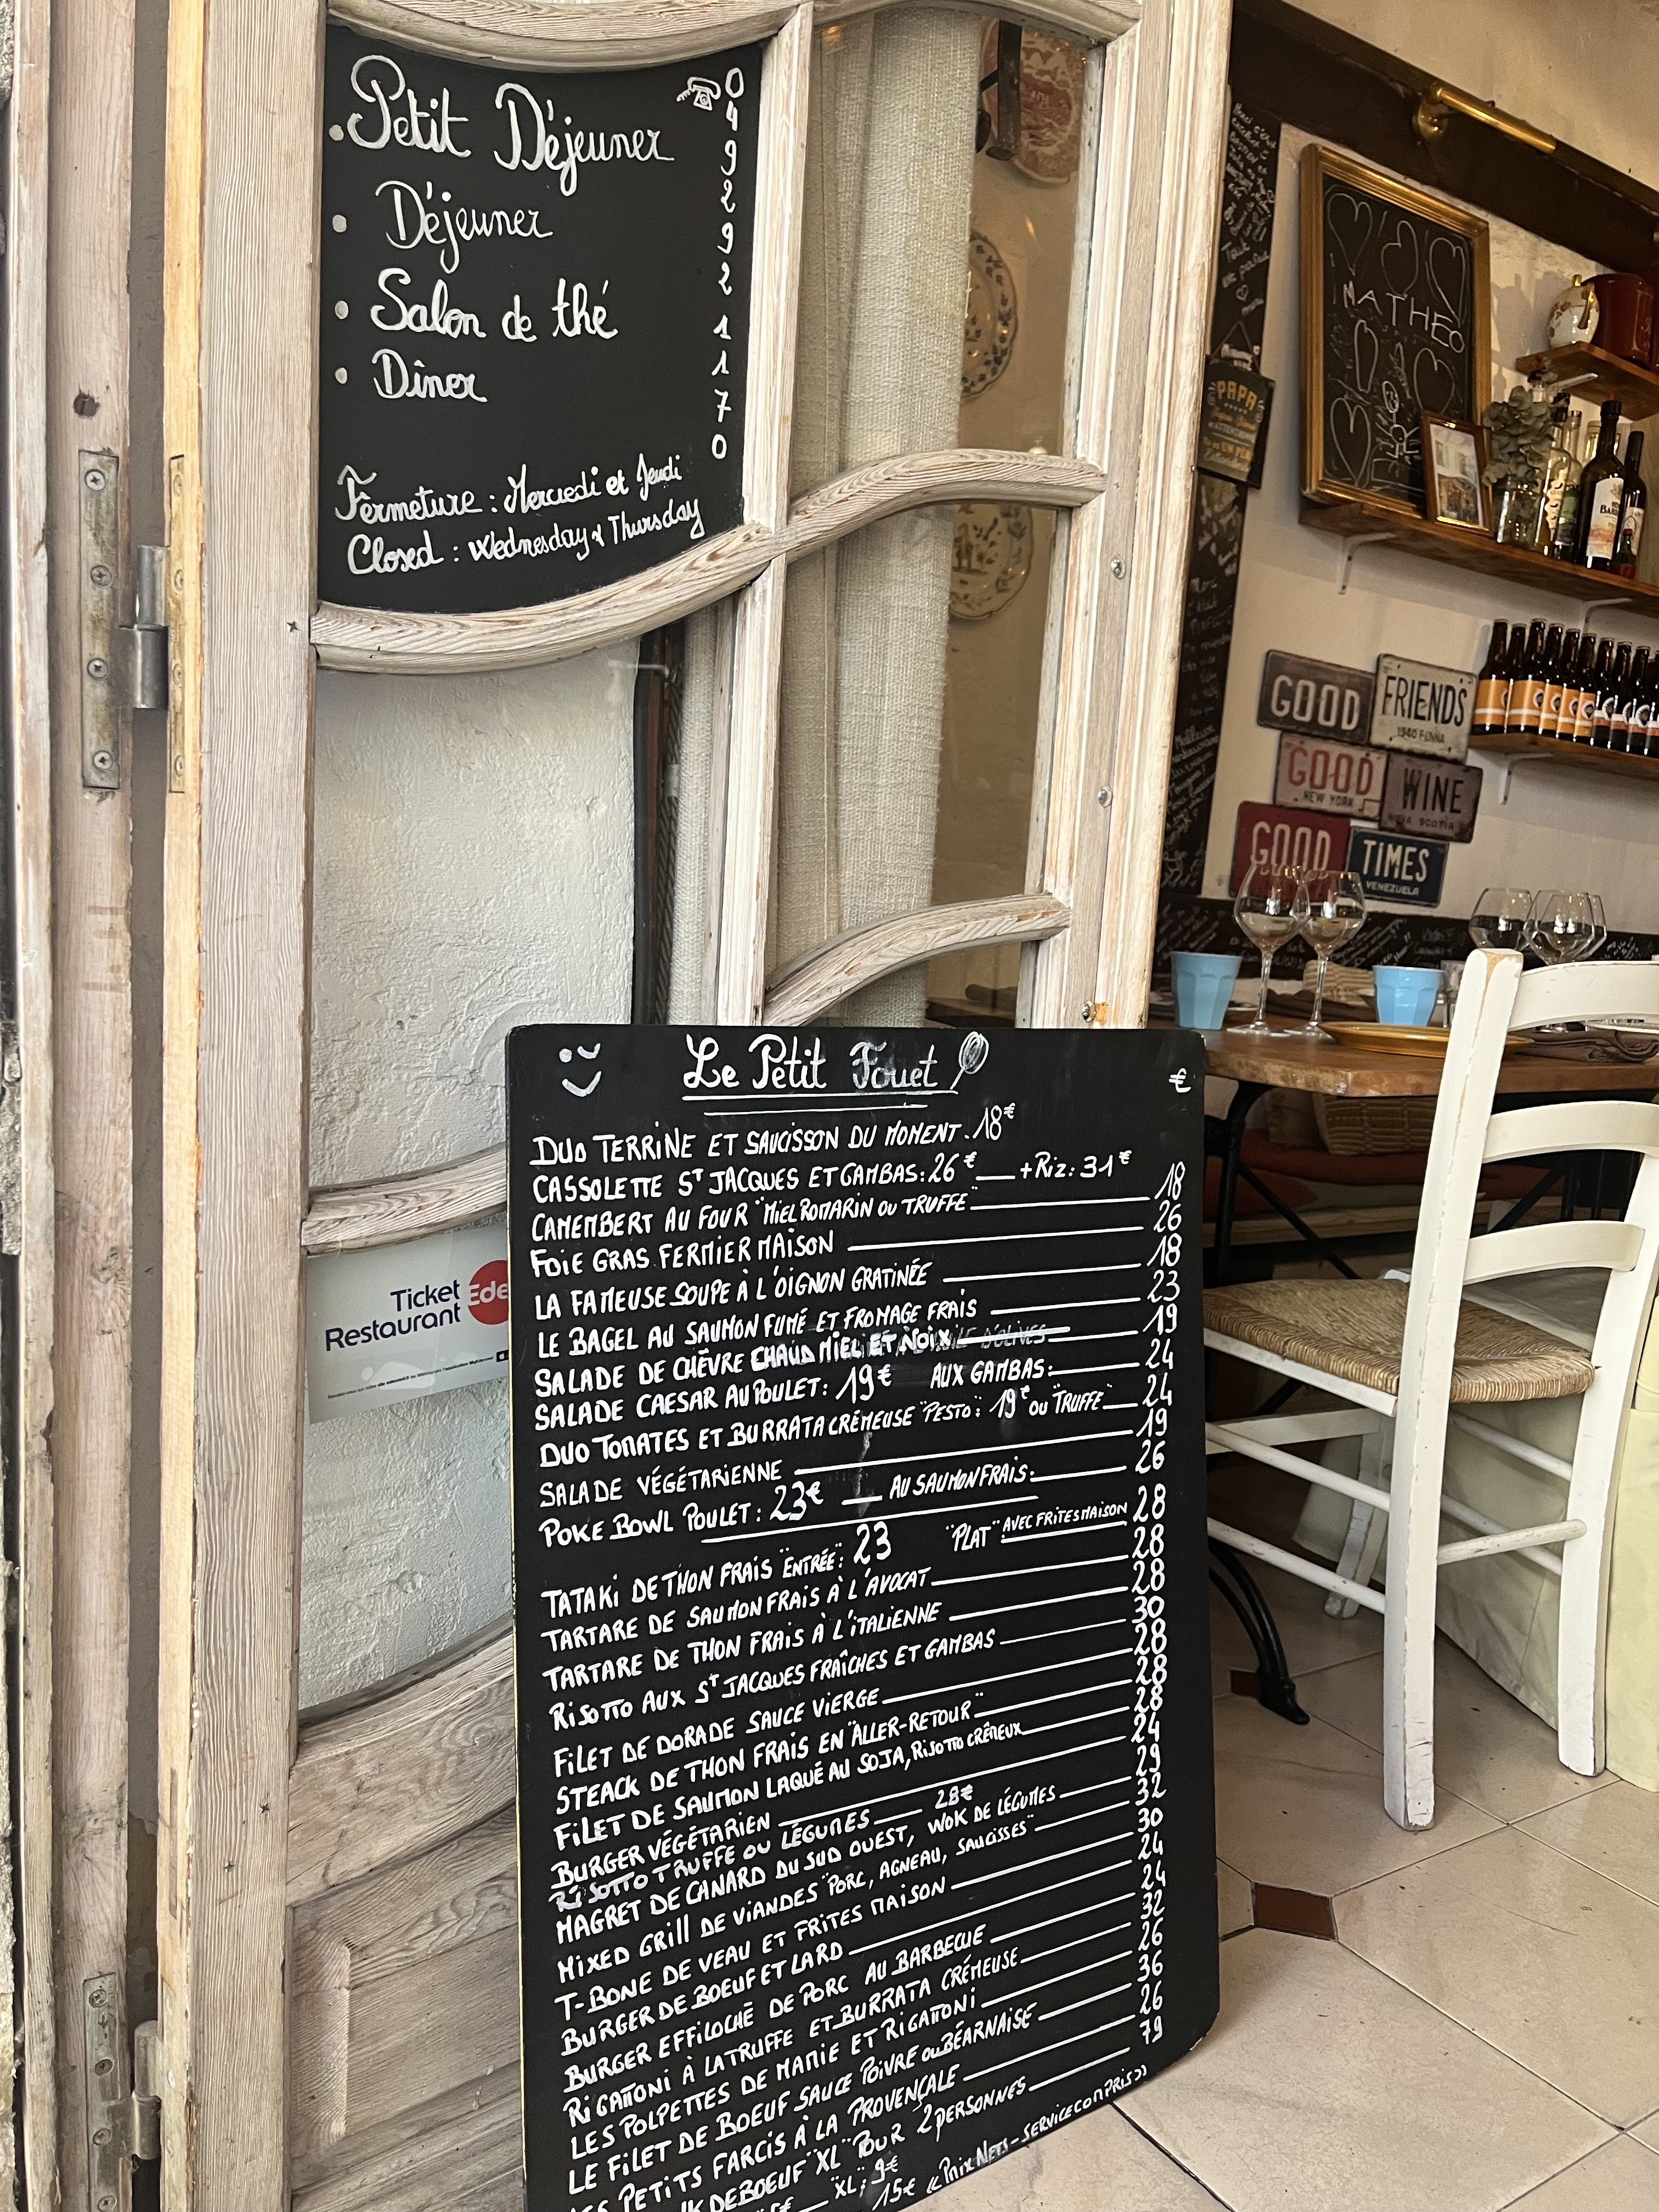 • Petit Déjeuner
• Déjeuner
• Salon de thé
• Dîner
0
4
9
2
9
2
1
1
7
0
Fermeture : Mercredi et Jeudi
Closed : Wednesday & Thursday
MATHEO
PAPA
GOOD
FRIENDS
GOOD
NEW YORK
WINE
NOVA SCOTIA
GOOD
TIMES
VENEZUELA
Ticket
Restaurant
Ede
Le Petit Fouet
€
DUO TERRINE ET SAUCISSON DU MOMENT. 18€
CASSOLETTE ST JACQUES ET GAMBAS: 26€ — +RIZ: 31€
CAMEMBERT AU FOUR "MIEL ROMARIN OU TRUFFE" 18
FOIE GRAS FERMIER MAISON 26
LA FAMEUSE SOUPE À L'OIGNON GRATINÉE 18
LE BAGEL AU SAUMON FUMÉ ET FROMAGE FRAIS 23
SALADE DE CHÈVRE CHAUD MIEL ET NOIX 19
SALADE CAESAR AU POULET: 19€ AUX GAMBAS: 24
DUO TOMATES ET BURRATA CRÉMEUSE "PESTO": 19€ OU "TRUFFE" 24
SALADE VÉGÉTARIENNE 19
POKE BOWL POULET: 23€ — AU SAUMON FRAIS: 26
TATAKI DE THON FRAIS "ENTRÉE": 23 "PLAT" AVEC FRITES MAISON 28
TARTARE DE SAUMON FRAIS À L'AVOCAT 28
TARTARE DE THON FRAIS À L'ITALIENNE 28
RISOTTO AUX ST JACQUES FRAÎCHES ET GAMBAS 30
FILET DE DORADE SAUCE VIERGE 28
STEACK DE THON FRAIS EN "ALLER-RETOUR" 28
FILET DE SAUMON LAQUÉ AU SOJA, RISOTTO CRÉMEUX 28
BURGER VÉGÉTARIEN 24
RISOTTO TRUFFE OU LÉGUMES 28€
MAGRET DE CANARD DU SUD OUEST, WOK DE LÉGUMES 29
MIXED GRILL DE VIANDES "PORC, AGNEAU, SAUCISSES" 32
T-BONE DE VEAU ET FRITES MAISON 30
BURGER DE BOEUF ET LARD 24
BURGER EFFILOCHÉ DE PORC AU BARBECUE 24
RIGATONI À LA TRUFFE ET BURRATA CRÉMEUSE 32
LES POLPETTES DE MAMIE ET RIGATONI 26
LE FILET DE BOEUF SAUCE POIVRE OU BÉARNAISE 36
PETITS FARCIS À LA PROVENÇALE 26
DE BOEUF "XL" POUR 2 PERSONNES 79
"XL": 9€
15€ «PRIX NETS - SERVICE COMPRIS»